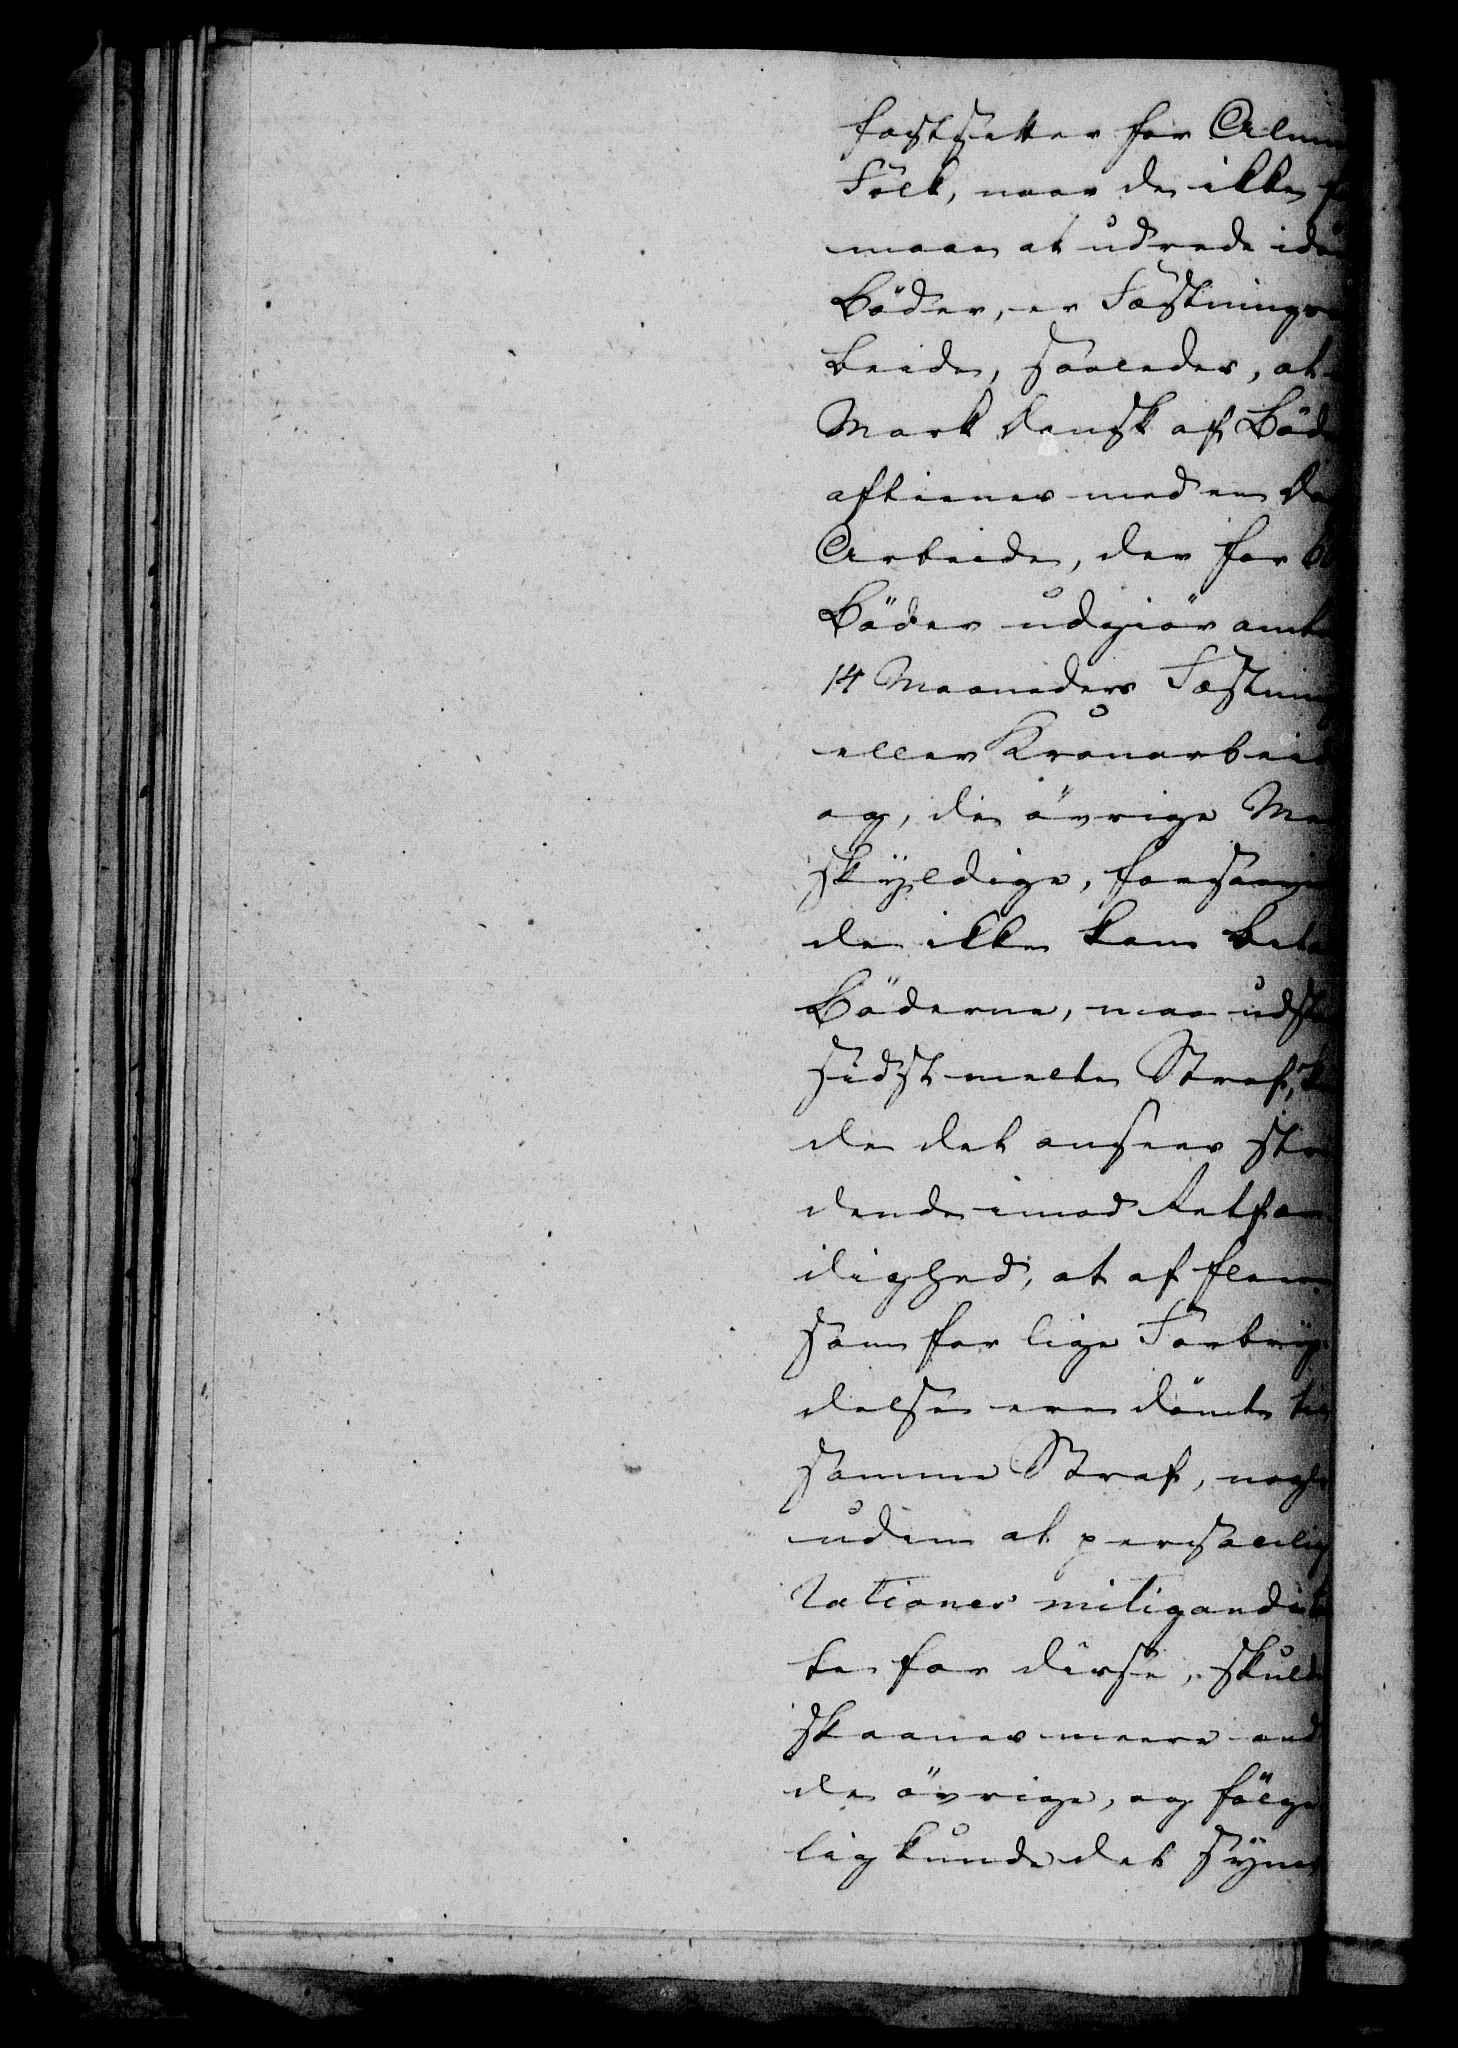 fastsetter for Almu
Folk, naar de ikke f
maae at udrede idø
Böder, er Fæstningsa
beide, saaledes, at
Mark Dansk af Böde
aftienes med en Da
Arbeide, der for
Böder udgiör omt
14 Maaneders Fæstnin
eller Kronarbeid
og, de övrige Me
skÿldige, forsaavi
de ikke kan beta
Böderne, maa udst
sidstmelte Straf,
de det ansees stri
dende imod Retfær
dighed, at af fleere
som for lige Forbrÿ-
delse ere dömte til
samme Straf, nogle
uden at personlig
rationes mitigandi
te for disse, skulde
skaanes meere end
de övrige, og fölge
lig kunde det sÿnes